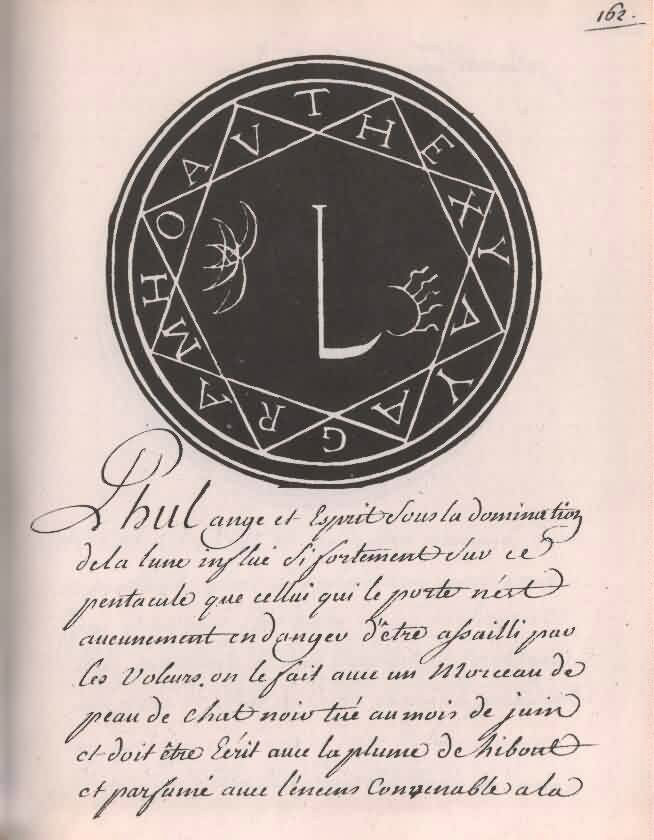 162.
T H E X Y A Y A G R A M H O A V
L
Phul ange et Esprit sous la domination
de la lune influe si fortement sur ce
pentacule que cellui qui le porte n'est
aucunement en danger d'être assailli par
les Voleurs. on le fait avec un Morceau de
peau de chat noir tué au mois de juin
et doit être Ecrit avec la plume de hiboue
et parfumé avec l'encens Convenable a la